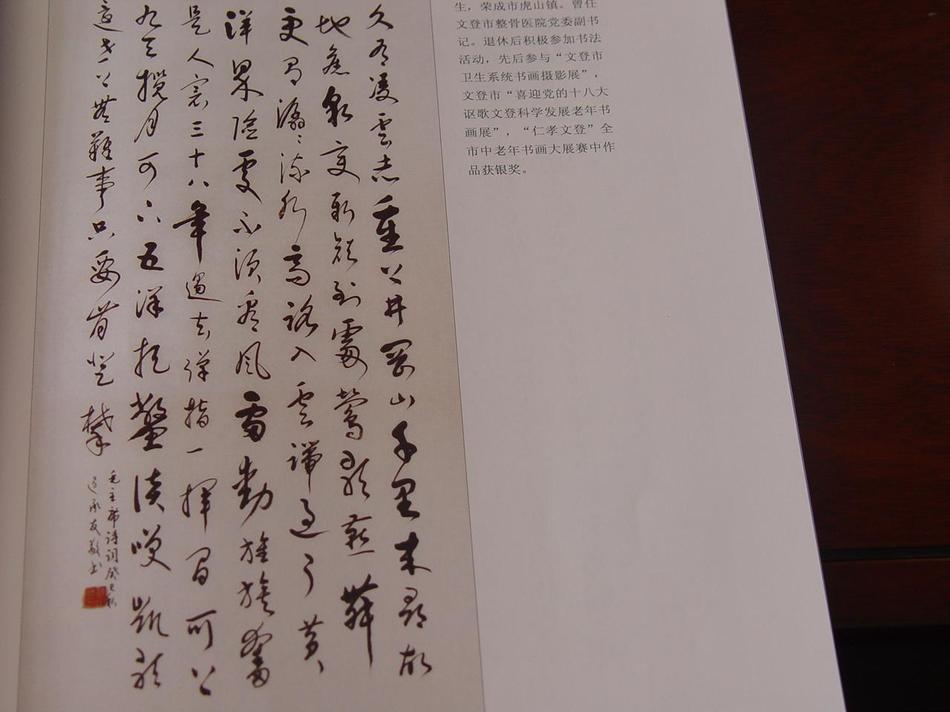 久有凌雲志重上井岡山千里来尋故
地舊貌变新颜到處鶯歌燕舞
更有潺潺流水高路入雲端過了黄
洋界險處不須看風雷動旌旗奮
是人寰三十八年過去彈指一揮間可上
九天攬月可下五洋捉鳖談笑凱歌
還世上無難事只要肯登攀
毛主席詩詞癸巳秋
生，荣成市虎山镇。曾任
文登市整骨医院党委副书
记。退休后积极参加书法
活动，先后参与“文登市
卫生系统书画摄影展”，
文登市“喜迎党的十八大
讴歌文登科学发展老年书
画展”，“仁孝文登”全
市中老年书画大展赛中作
品获银奖。